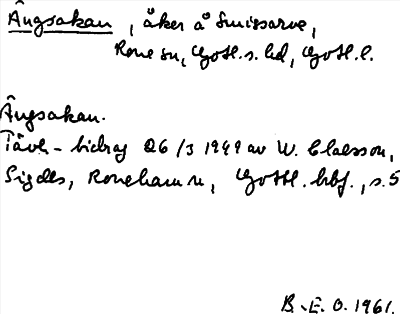 Ängsakan, åker å Smissarve,
Rone sn, Gotl. s. hd, Gotl. l.
Ängsakan.
Tävl-bidrag 26/3 1949 av W. Claesson,
Sigdes, Ronehamn, Gottl. hbf., s. 5
B. E. O. 1961.